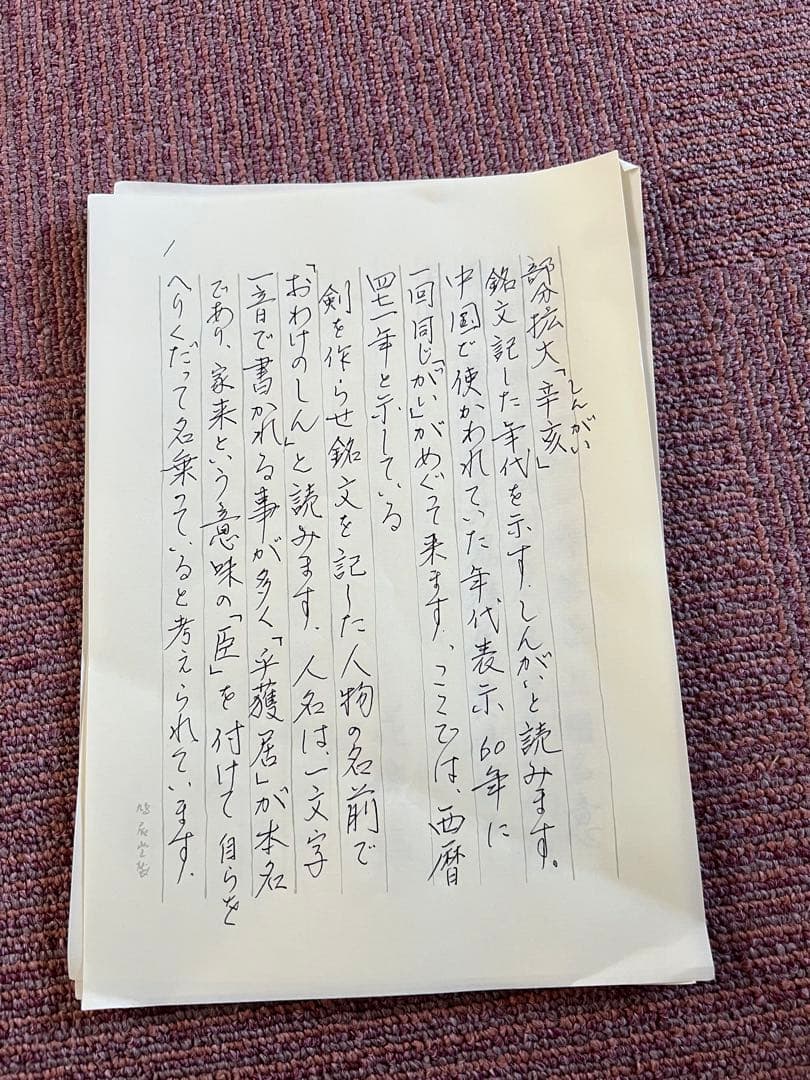 部分拡大「辛亥」
しんがい
銘文記した年代を示す.しんがいと読みます。
中国で使かわれていた年代表示60年に
一回同じ「がい」がめぐって来ます.、ここでは、西暦
四七一年と示している
剣を作らせ銘文を記した人物の名前で
「おわけのしん」と読みます.人名は、一文字
一音で書かれる事が多く「乎獲居」が本名
であり、家来という意味の「臣」を付けて自らを
へりくだって名乗っていると考えられています.
1
鳩居堂製